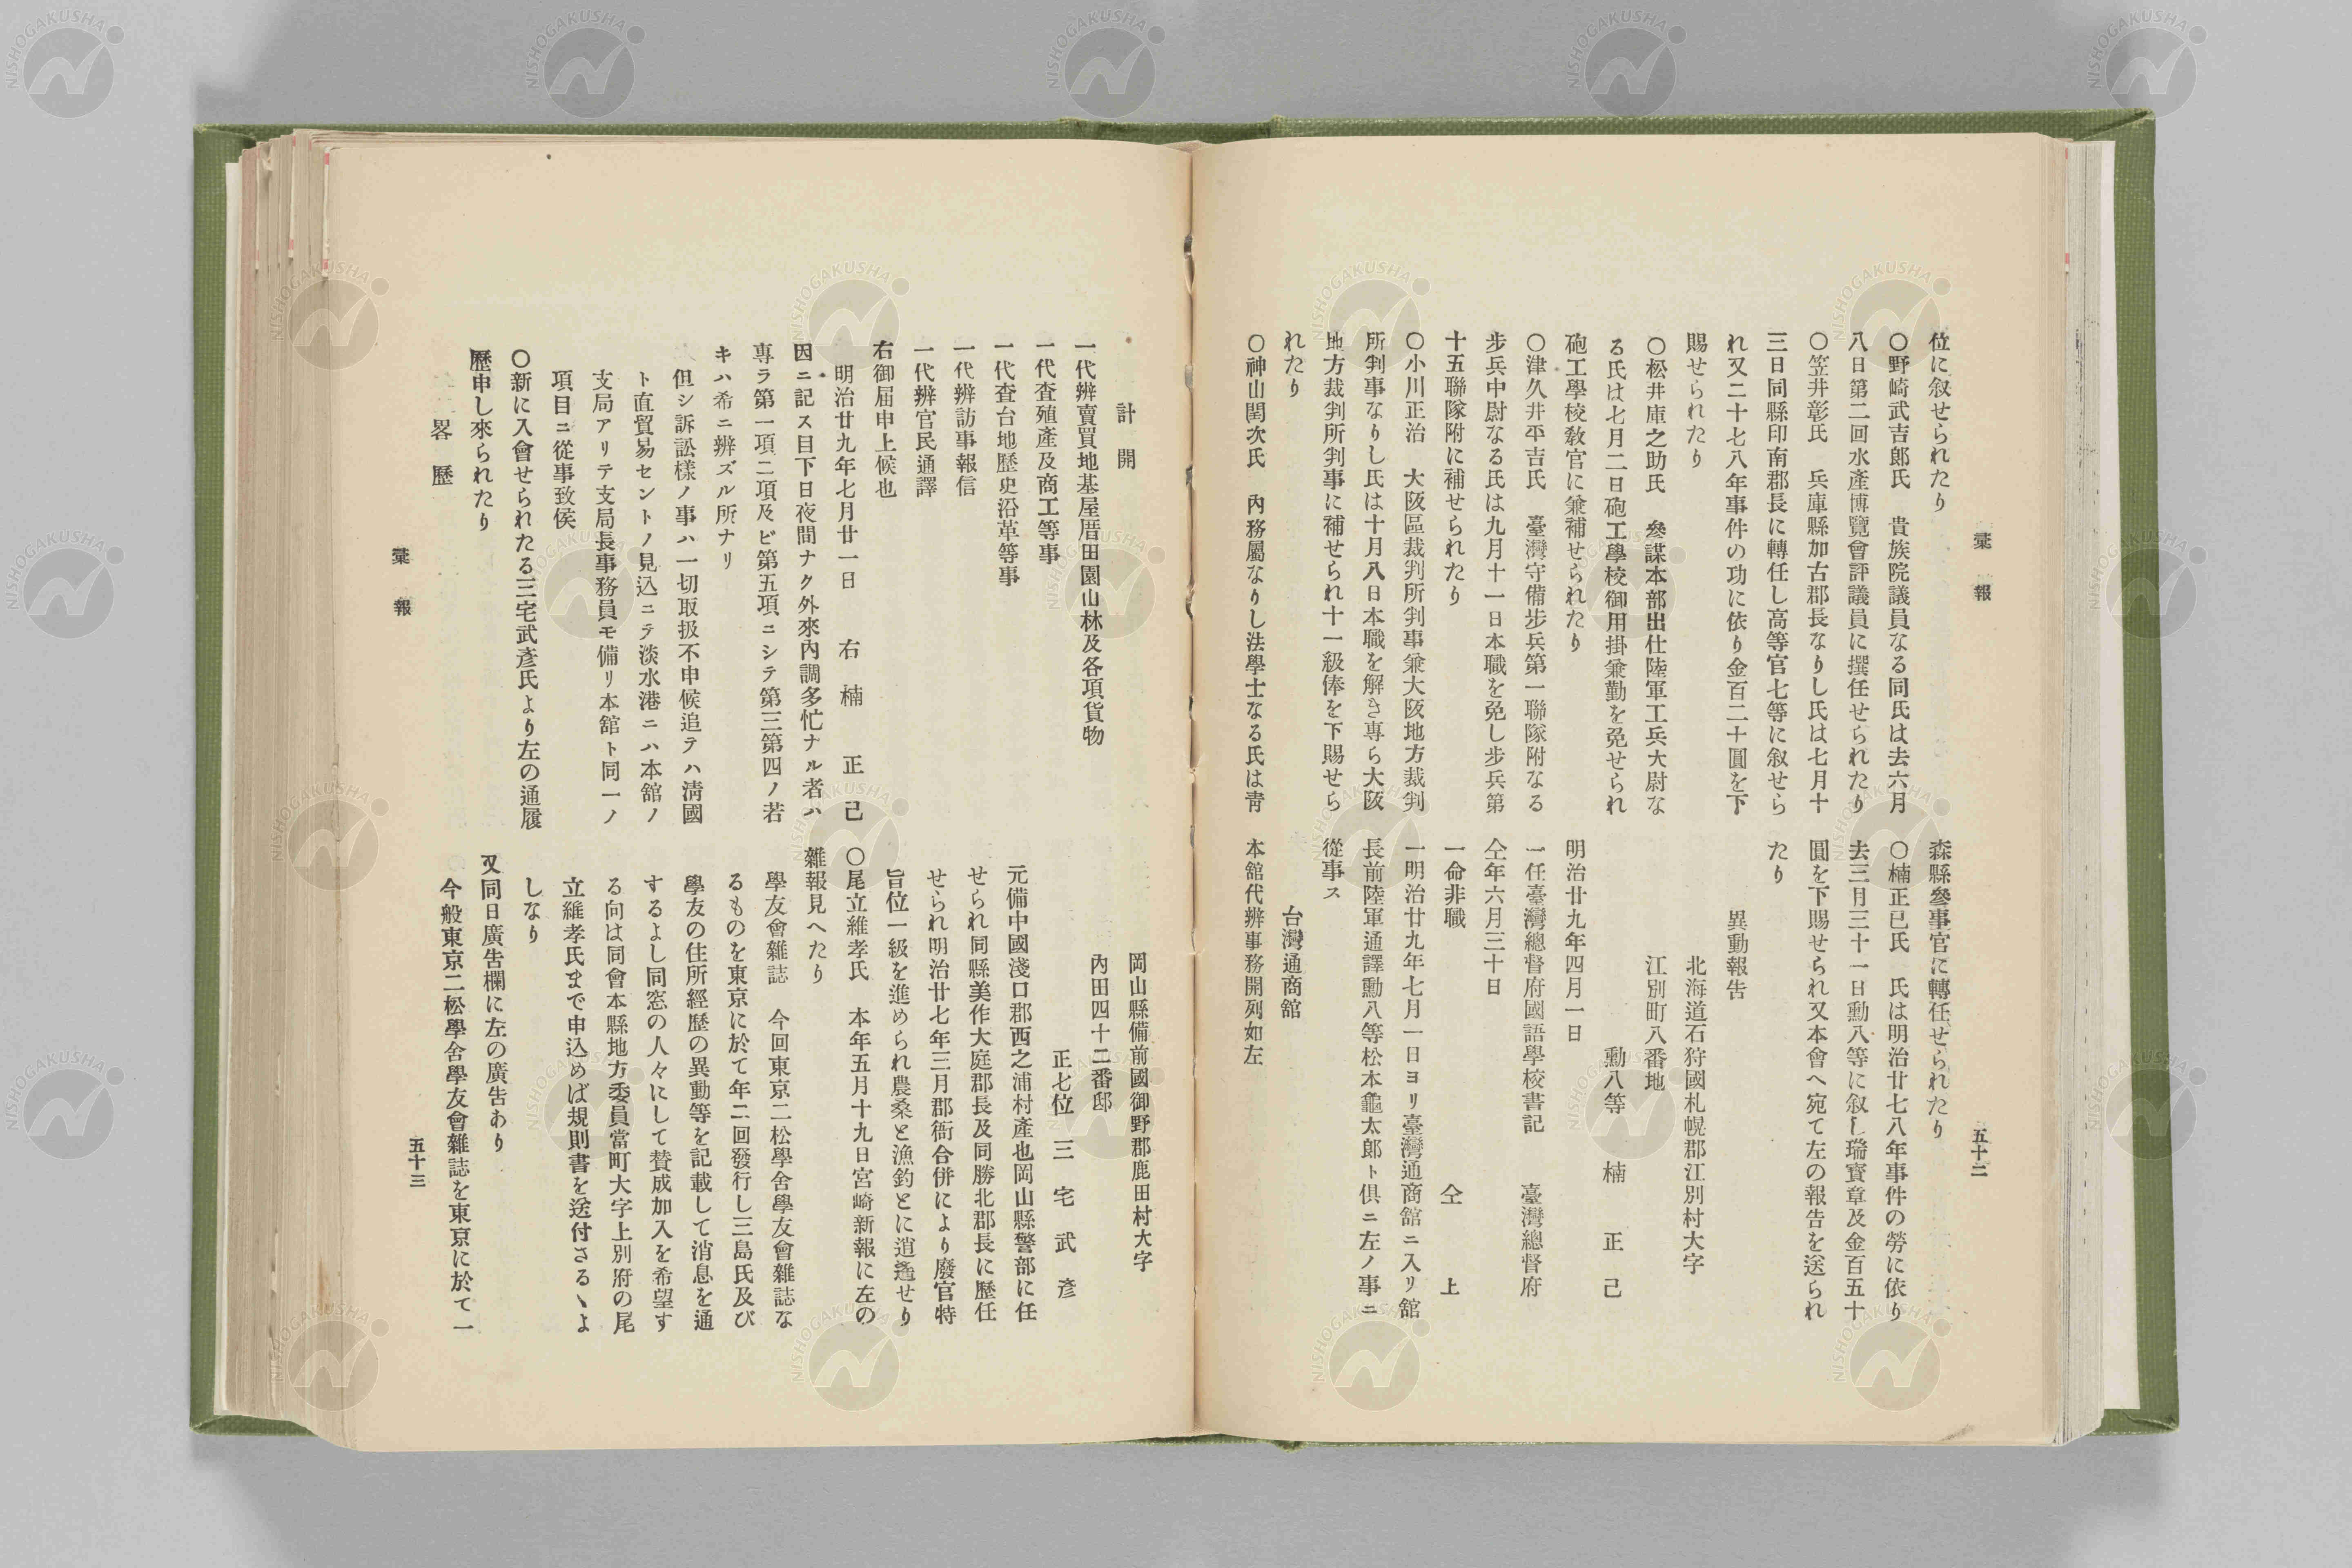 彙報
五十二
位に叙せられたり
○野崎武吉郎氏　貴族院議員なる同氏は去六月
八日第二回水產博覽會評議員に撰任せられたり
○笠井彰氏　兵庫縣加古郡長なりし氏は七月十
三日同縣印南郡長に轉任し高等官七等に叙せら
れ又二十七八年事件の功に依り金百二十圓を下
賜せられたり
○松井庫之助氏　參謀本部出仕陸軍工兵大尉な
る氏は七月二日砲工學校御用掛兼勤を免せられ
砲工學校敎官に兼補せられたり
○津久井平吉氏　臺灣守備步兵第一聯隊附なる
步兵中尉なる氏は九月十一日本職を免し步兵第
十五聯隊附に補せられたり
○小川正治　大阪區裁判所判事兼大阪地方裁判
所判事なりし氏は十月八日本職を解き專ら大阪
地方裁判所判事に補せられ十一級俸を下賜せら
れたり
○神山閏次氏　內務屬なりし法學士なる氏は靑
森縣參事官に轉任せられたり
○楠正已氏　氏は明治廿七八年事件の勞に依り
去三月三十一日勳八等に叙し瑞寳章及金百五十
圓を下賜せられ又本會へ宛て左の報吿を送られ
たり
異動報吿
北海道石狩國札幌郡江別村大字
江別町八番地
勳八等　楠　正　己
明治廿九年四月一日
一任臺灣總督府國語學校書記　臺灣總督府
仝年六月三十日
一命非職　仝　上
一明治廿九年七月一日ヨリ臺灣通商舘ニ入リ舘
長前陸軍通譯勳八等松本龜太郞ト俱ニ左ノ事ニ
從事ス
台灣通商舘
本舘代辨事務開列如左
計　開
一代辨賣買地基屋厝田園山林及各項貨物
一代査殖產及商工等事
一代査台地歷史沿革等事
一代辨訪事報信
一代辨官民通譯
右御届申上候也
明治廿九年七月廿一日　右　楠　正　己
因ニ記ス目下日夜間ナク外來內調多忙ナル者ハ
專ラ第一項二項及ビ第五項ニシテ第三第四ノ若
キハ希ニ辨ズル所ナリ
但シ訴訟樣ノ事ハ一切取扱不申候追テハ淸國
ト直貿易セントノ見込ニテ淡水港ニハ本舘ノ
支局アリテ支局長事務員モ備リ本舘ト同一ノ
項目ニ從事致侯
○新に入會せられたる三宅武彥氏より左の通履
歷申し來られたり
畧　歷
岡山縣備前國御野郡鹿田村大字
內田四十二番邸
正七位　三　宅　武　彥
元備中國淺口郡西之浦村產也岡山縣警部に任
せられ同縣美作大庭郡長及同勝北郡長に歷任
せられ明治廿七年三月郡衙合併により廢官特
旨位一級を進められ農桑と漁釣とに逍遙せり
○尾立維孝氏　本年五月十九日宮崎新報に左の
雜報見へたり
學友會雜誌　今回東京二松學舍學友會雜誌な
るものを東京に於て年二回發行し三島氏及び
學友の住所經歷の異動等を記載して消息を通
するよし同窓の人々にして賛成加入を希望す
る向は同會本縣地方委員當町大字上別府の尾
立維孝氏まで申込めば規則書を送付さるゝよ
しなり
又同日廣吿欄に左の廣吿あり
今般東京二松學舍學友會雜誌を東京に於て一
彙報
五十三
NISHOGAKUSHA